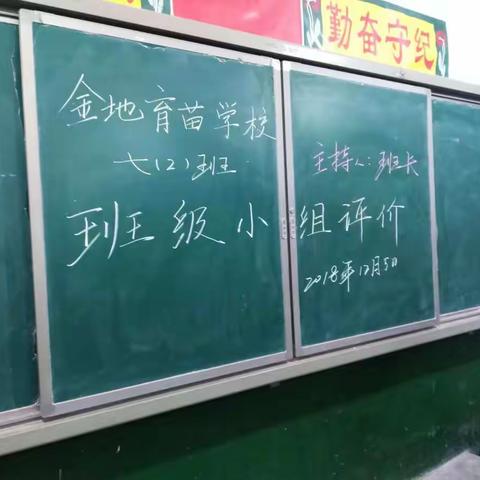 勤奋守纪
金地育苗学校
七(2)班
主持人:班长
班级小组评价
2018年12月5日